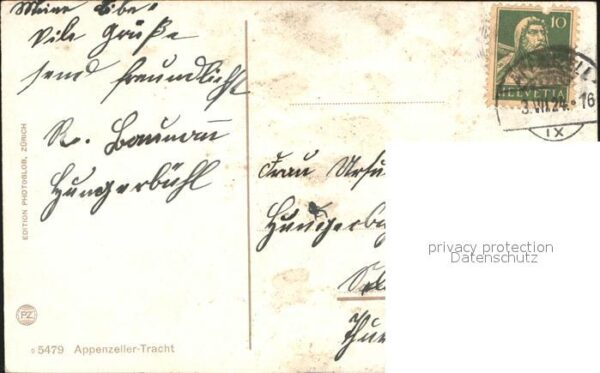 Meine Liebe
Viele Grüße
send freundlichst
R. Baumann
Hungerbühl
EDITION PHOTOGLOB, ZÜRICH
PZ
5479 Appenzeller-Tracht
10
HELVETIA
3.VII.24.-16
IX
Frau Ursu
Hungerb
Thur
privacy protection
Datenschutz